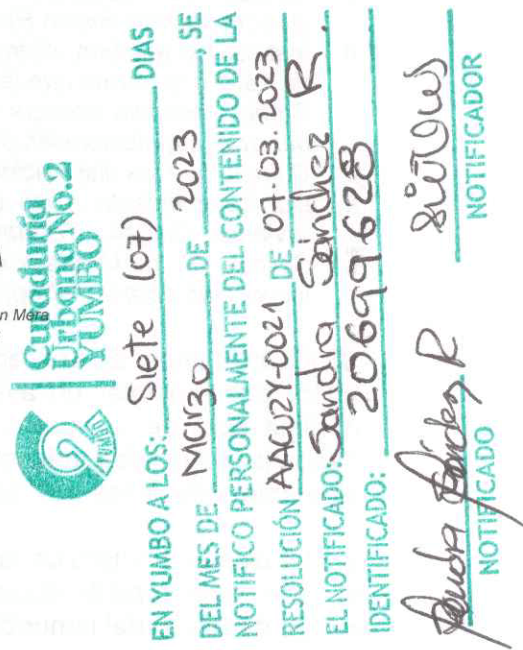 Curaduría
Urbana No.2
YUMBO
YUMBO
n Mera
EN YUMBO A LOS: Siete (07) DIAS
DEL MES DE Marzo DE 2023, SE
NOTIFICO PERSONALMENTE DEL CONTENIDO DE LA
RESOLUCIÓN AACU2Y-0021 DE 07.03.2023
EL NOTIFICADO: Sandra Sánchez R.
IDENTIFICADO: 20699628
Sandra Sánchez R
NOTIFICADO
NOTIFICADOR